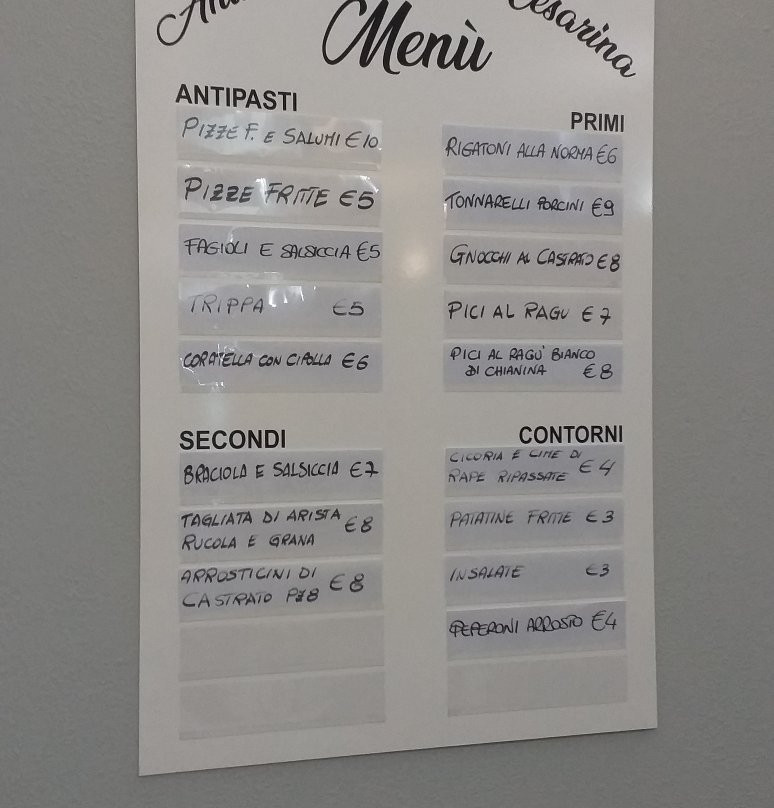 Cesarina
Menù
ANTIPASTI
PIZZE F. E SALUMI €10
PIZZE FRITTE €5
FAGIOLI E SALSICCIA €5
TRIPPA €5
CORATELLA CON CIPOLLA €6
PRIMI
RIGATONI ALLA NORMA €6
TONNARELLI PORCINI €9
GNOCCHI AL CASTRATO €8
PICI AL RAGU €7
PICI AL RAGU' BIANCO
DI CHIANINA €8
SECONDI
BRACIOLA E SALSICCIA €7
TAGLIATA DI ARISTA €8
RUCOLA E GRANA
ARROSTICINI DI €8
CASTRATO PZ8
CONTORNI
CICORIA E CIME DI €4
RAPE RIPASSATE
PATATINE FRITTE €3
INSALATE €3
PEPERONI ARROSTO €4